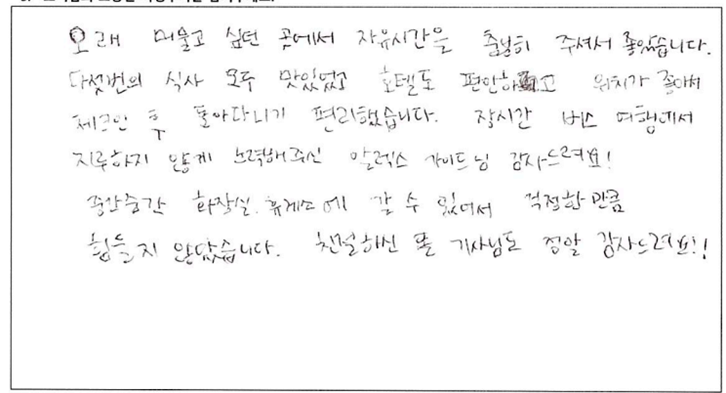 오래 머물고 싶던 곳에서 자유시간을 충분히 주셔서 좋았습니다.
다섯번의 식사 모두 맛있었고 호텔도 편안하고 위치가 좋아서
체크인 후 돌아다니기 편리했습니다. 장시간 버스 여행에서
지루하지 않게 노력해주신 알렉스 가이드님 감사드려요!
중간중간 화장실, 휴게소에 갈 수 있어서 걱정한만큼
힘들지 않았습니다. 친절하신 폴 기사님도 정말 감사드려요!!